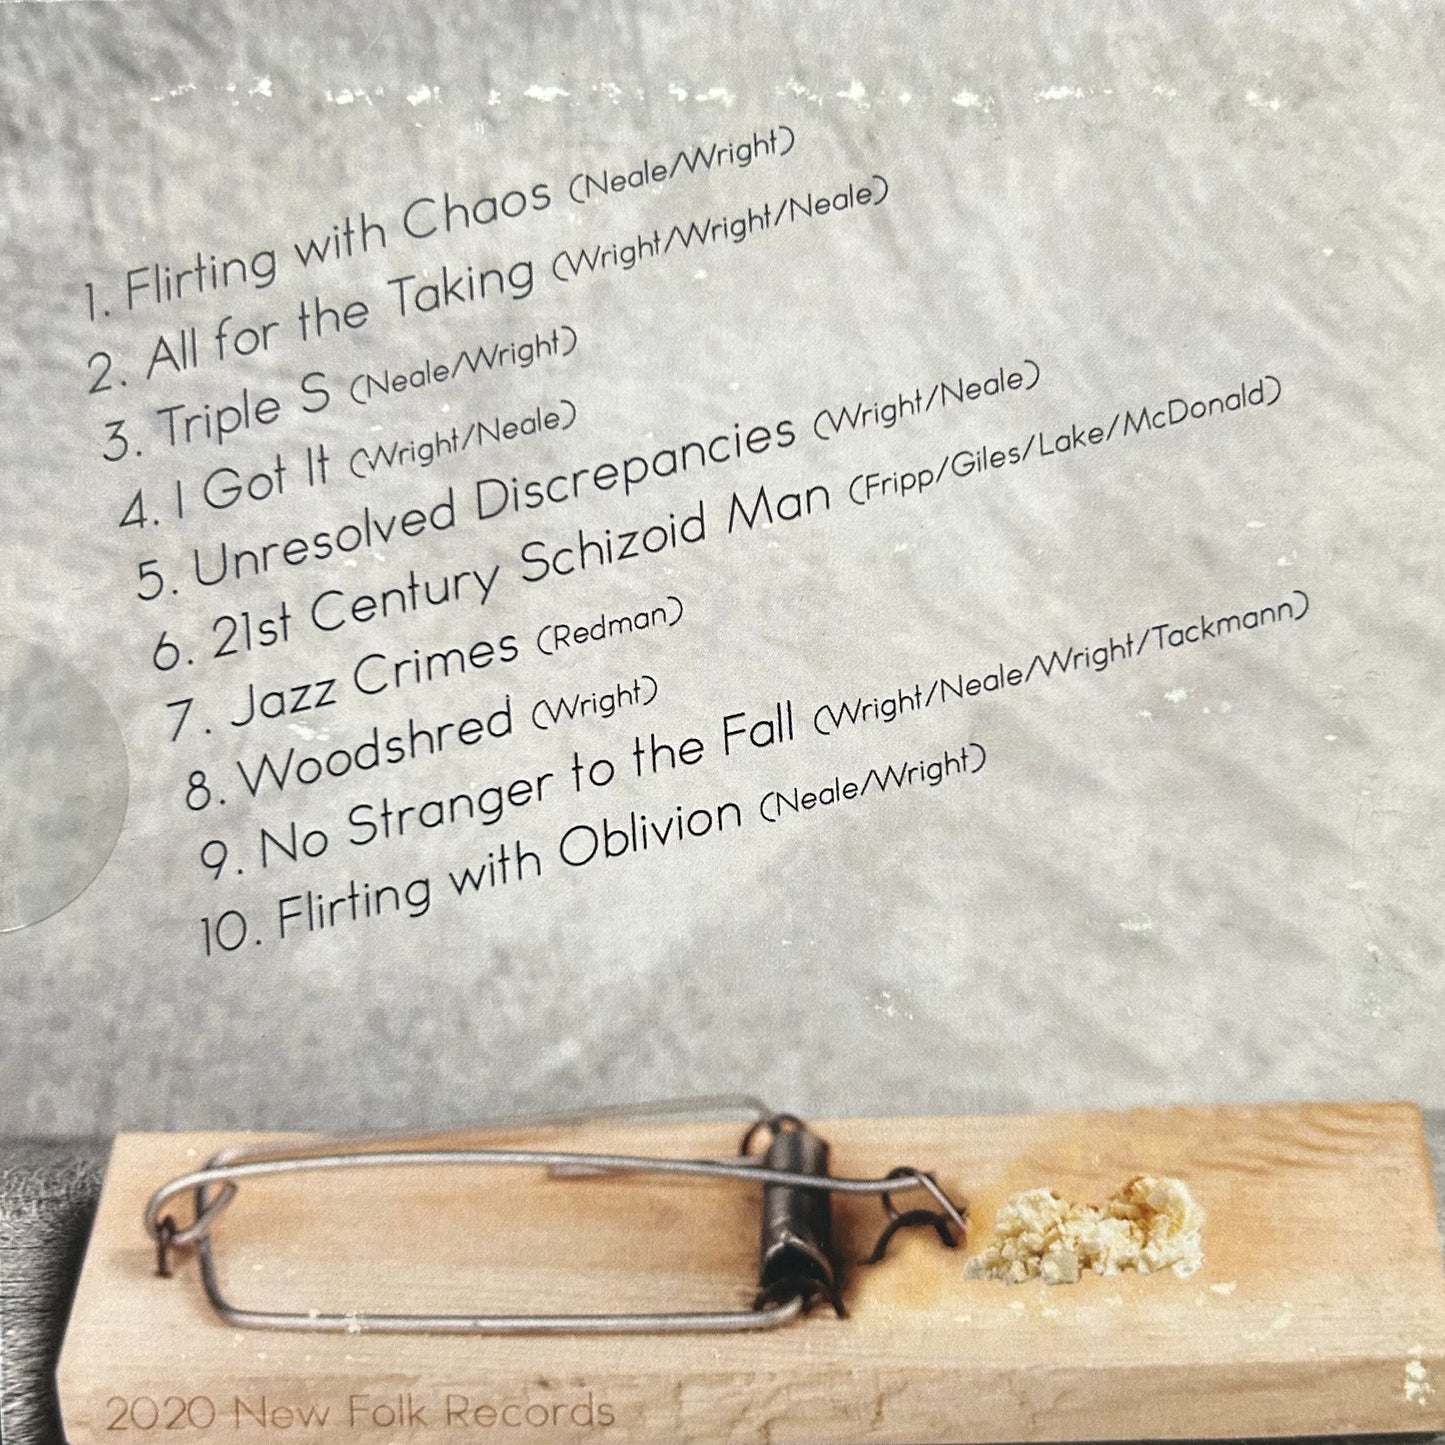 1. Flirting with Chaos (Neale/Wright)
2. All for the Taking (Wright/Wright/Neale)
3. Triple S (Neale/Wright)
4. I Got It (Wright/Neale)
5. Unresolved Discrepancies (Wright/Neale)
6. 21st Century Schizoid Man (Fripp/Giles/Lake/McDonald)
7. Jazz Crimes (Redman)
8. Woodshred (Wright)
9. No Stranger to the Fall (Wright/Neale/Wright/Tackmann)
10. Flirting with Oblivion (Neale/Wright)
2020 New Folk Records